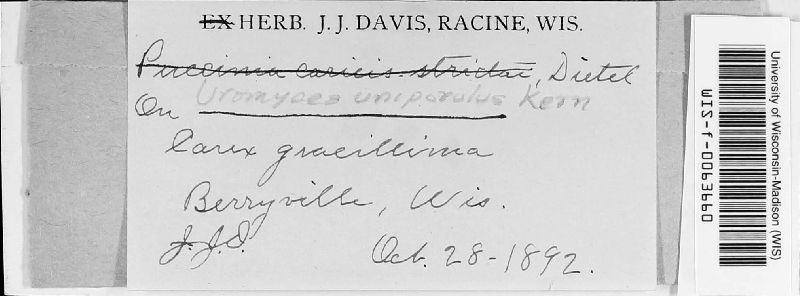 EX HERB. J. J. DAVIS, RACINE, WIS.
Puccinia caricis-strictae, Dietel
Uromyces uniporulus Kern
On
Carex gracillima
Berryville, Wis.
J. J. D. Oct. 28-1892.
University of Wisconsin-Madison (WIS)
WIS-f-0093990